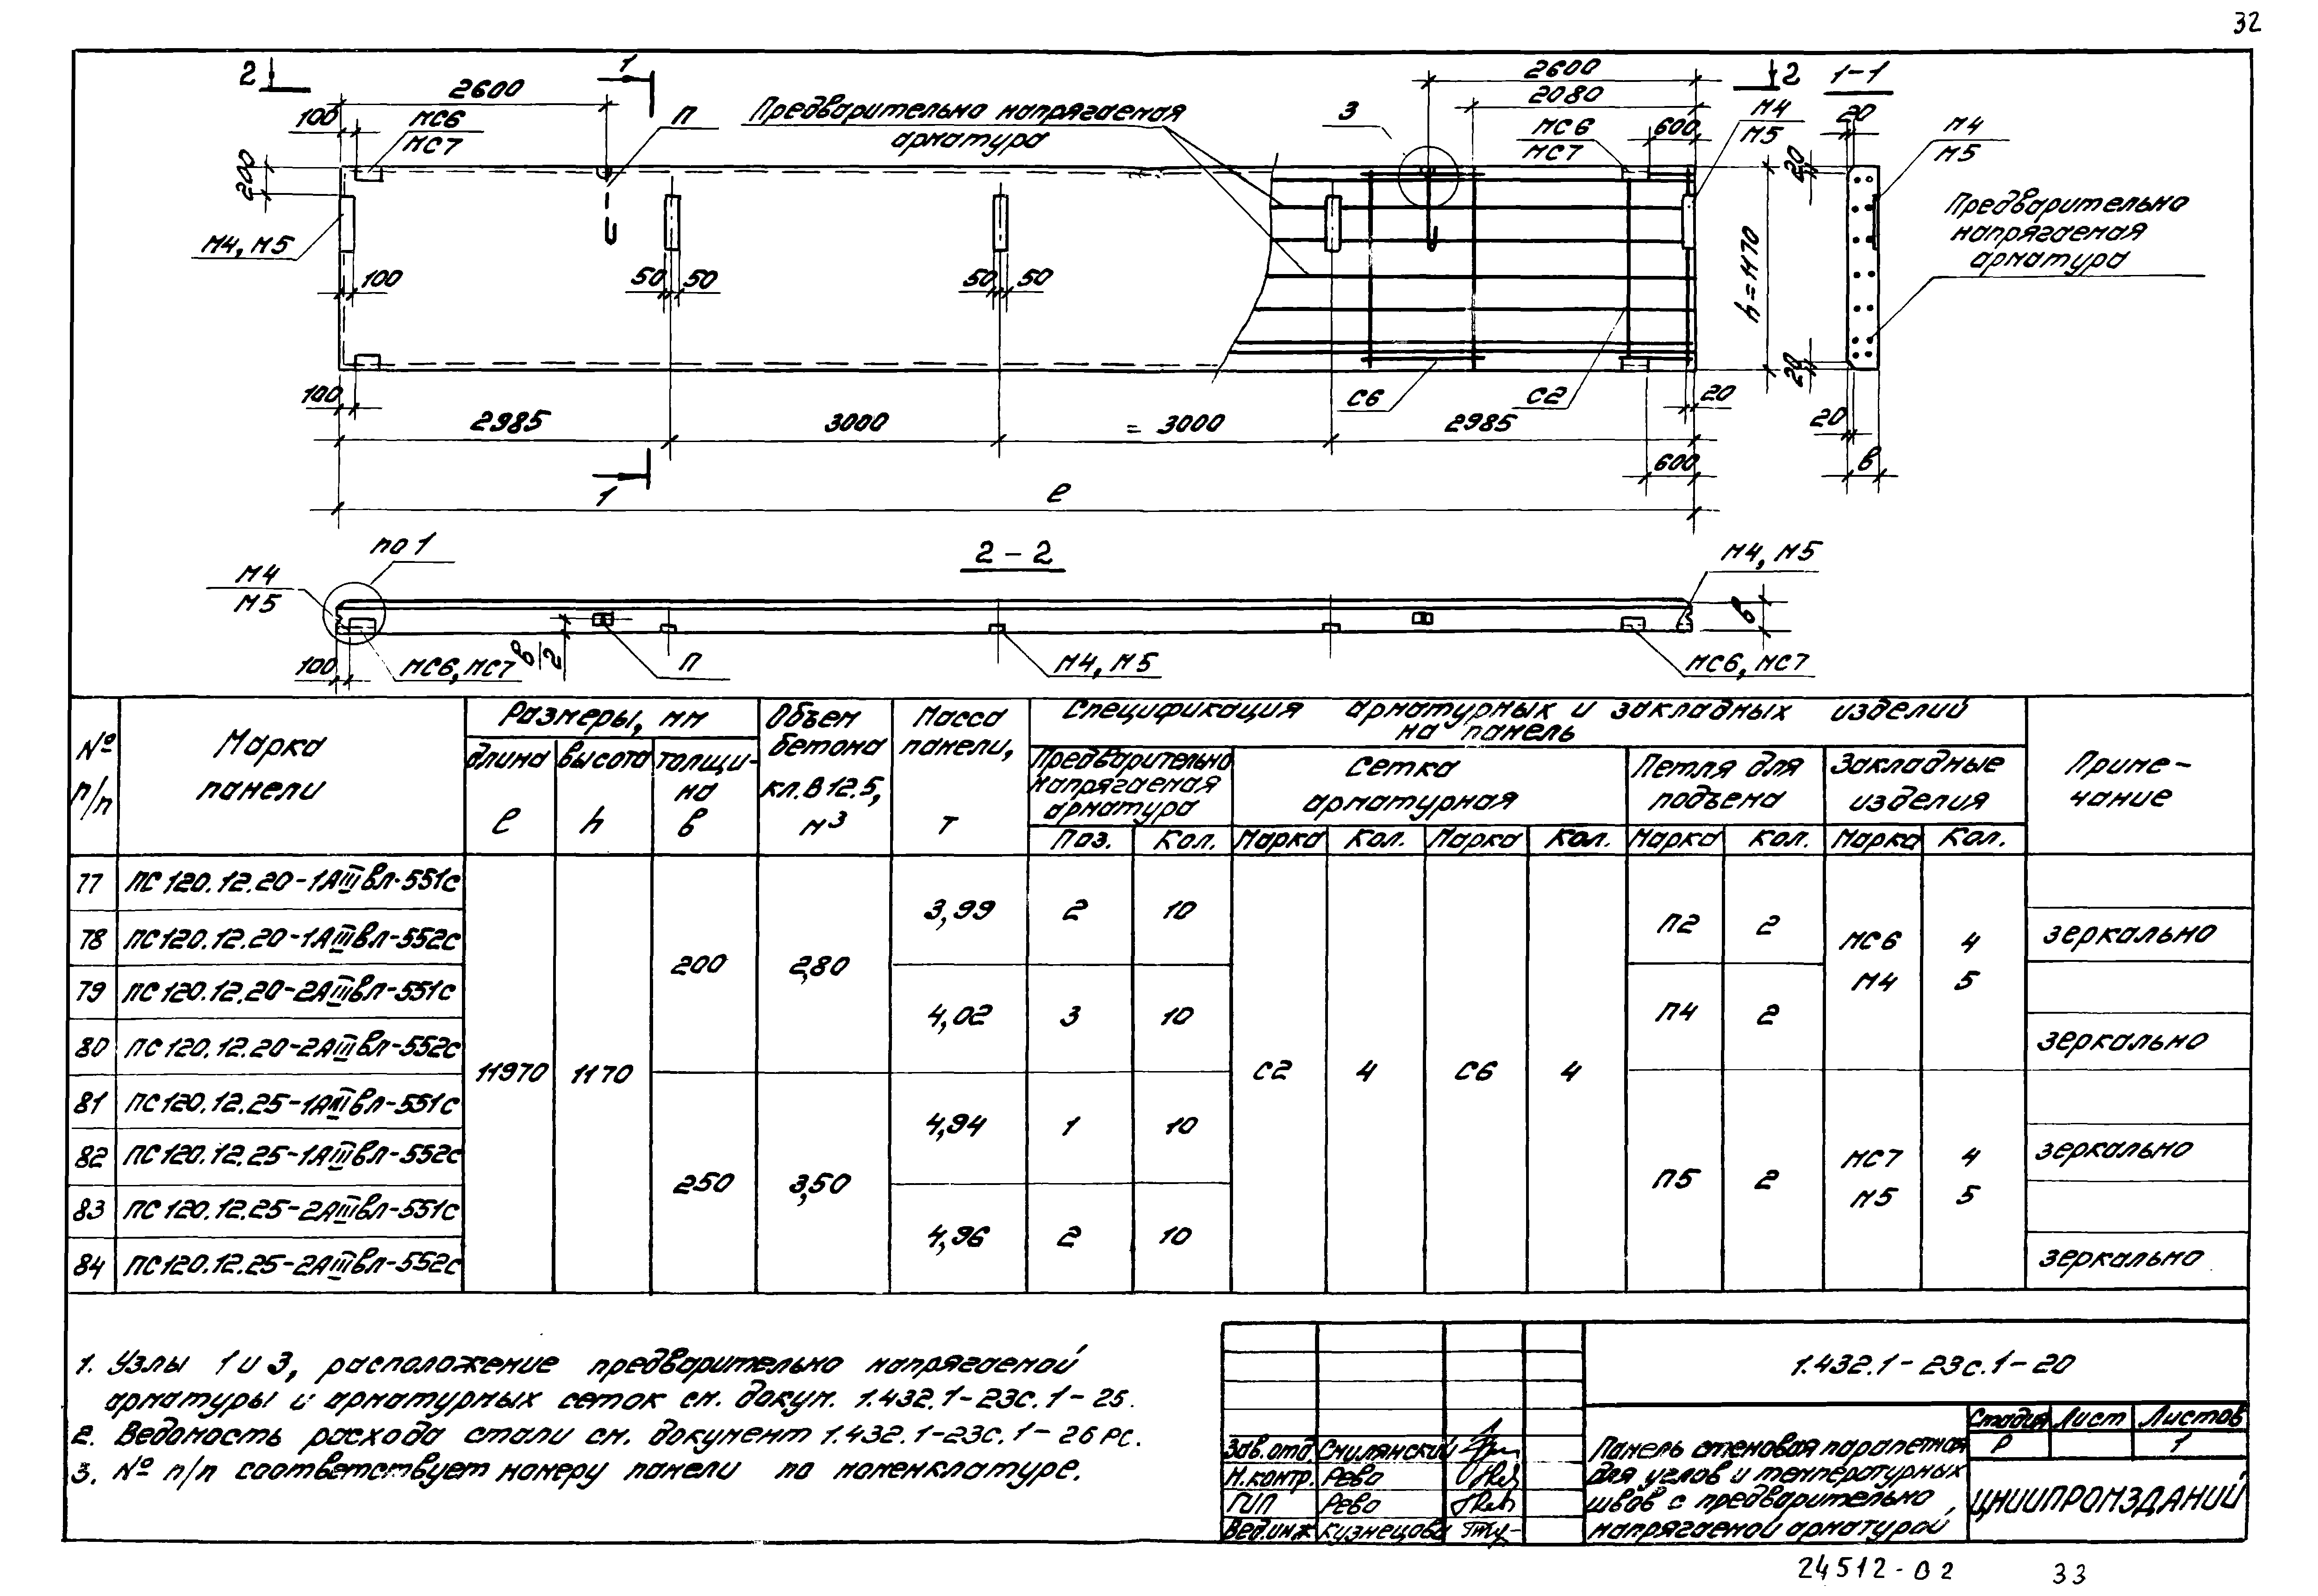 32
2
2600
1
2600
2
1-1
100
МС6
МС7
П
Предварительно напрягаемая
арматура
3
2080
МС6
МС7
600
М4
М5
20
М4
М5
200
20
Предварительно
напрягаемая
арматура
М4, М5
100
50
50
50
50
h=1170
100
С6
С2
20
20
20
2985
3000
= 3000
2985
600
в
1
ℓ
по 1
2 - 2
М4, М5
М4
М5
в
100
МС6, МС7
в/2
П
М4, М5
МС6, МС7
№ п/п
Марка панели
Размеры, мм
длина ℓ
высота h
толщина в
Объем бетона кл. В 12.5, м³
Масса панели, т
Спецификация арматурных и закладных изделий
на панель
Предварительно напрягаемая арматура
Сетка арматурная
Петля для подъема
Закладные изделия
Примечание
Поз. Кол. Марка Кол. Марка Кол. Марка Кол. Марка Кол.
77 ПС120.12.20-1АIIIвл-551с
78 ПС120.12.20-1АIIIвл-552с зеркально
79 ПС120.12.20-2АIIIвл-551с
80 ПС120.12.20-2АIIIвл-552с зеркально
81 ПС120.12.25-1АIIIвл-551с
82 ПС120.12.25-1АIIIвл-552с зеркально
83 ПС120.12.25-2АIIIвл-551с
84 ПС120.12.25-2АIIIвл-552с зеркально
11970 1170
200 2,80
250 3,50
3,99 2 10
4,02 3 10
4,94 1 10
4,96 2 10
С2 4 С6 4
П2 2
П4 2
П5 2
МС6 4
М4 5
МС7 4
М5 5
1. Узлы 1 и 3, расположение предварительно напрягаемой
арматуры и арматурных сеток см. докум. 1.432.1-23с.1-25.
2. Ведомость расхода стали см. документ 1.432.1-23с.1-26РС.
3. № п/п соответствует номеру панели по номенклатуре.
1.432.1-23с.1-20
Зав.отд. Смилянский
Н.контр. Рево
ГИП Рево
Вед.инж Кузнецова
Панель стеновая парапетная
для углов и температурных
швов с предварительно
напрягаемой арматурой
Стадия Лист Листов
Р 1
ЦНИИПРОМЗДАНИЙ
24512-02 33